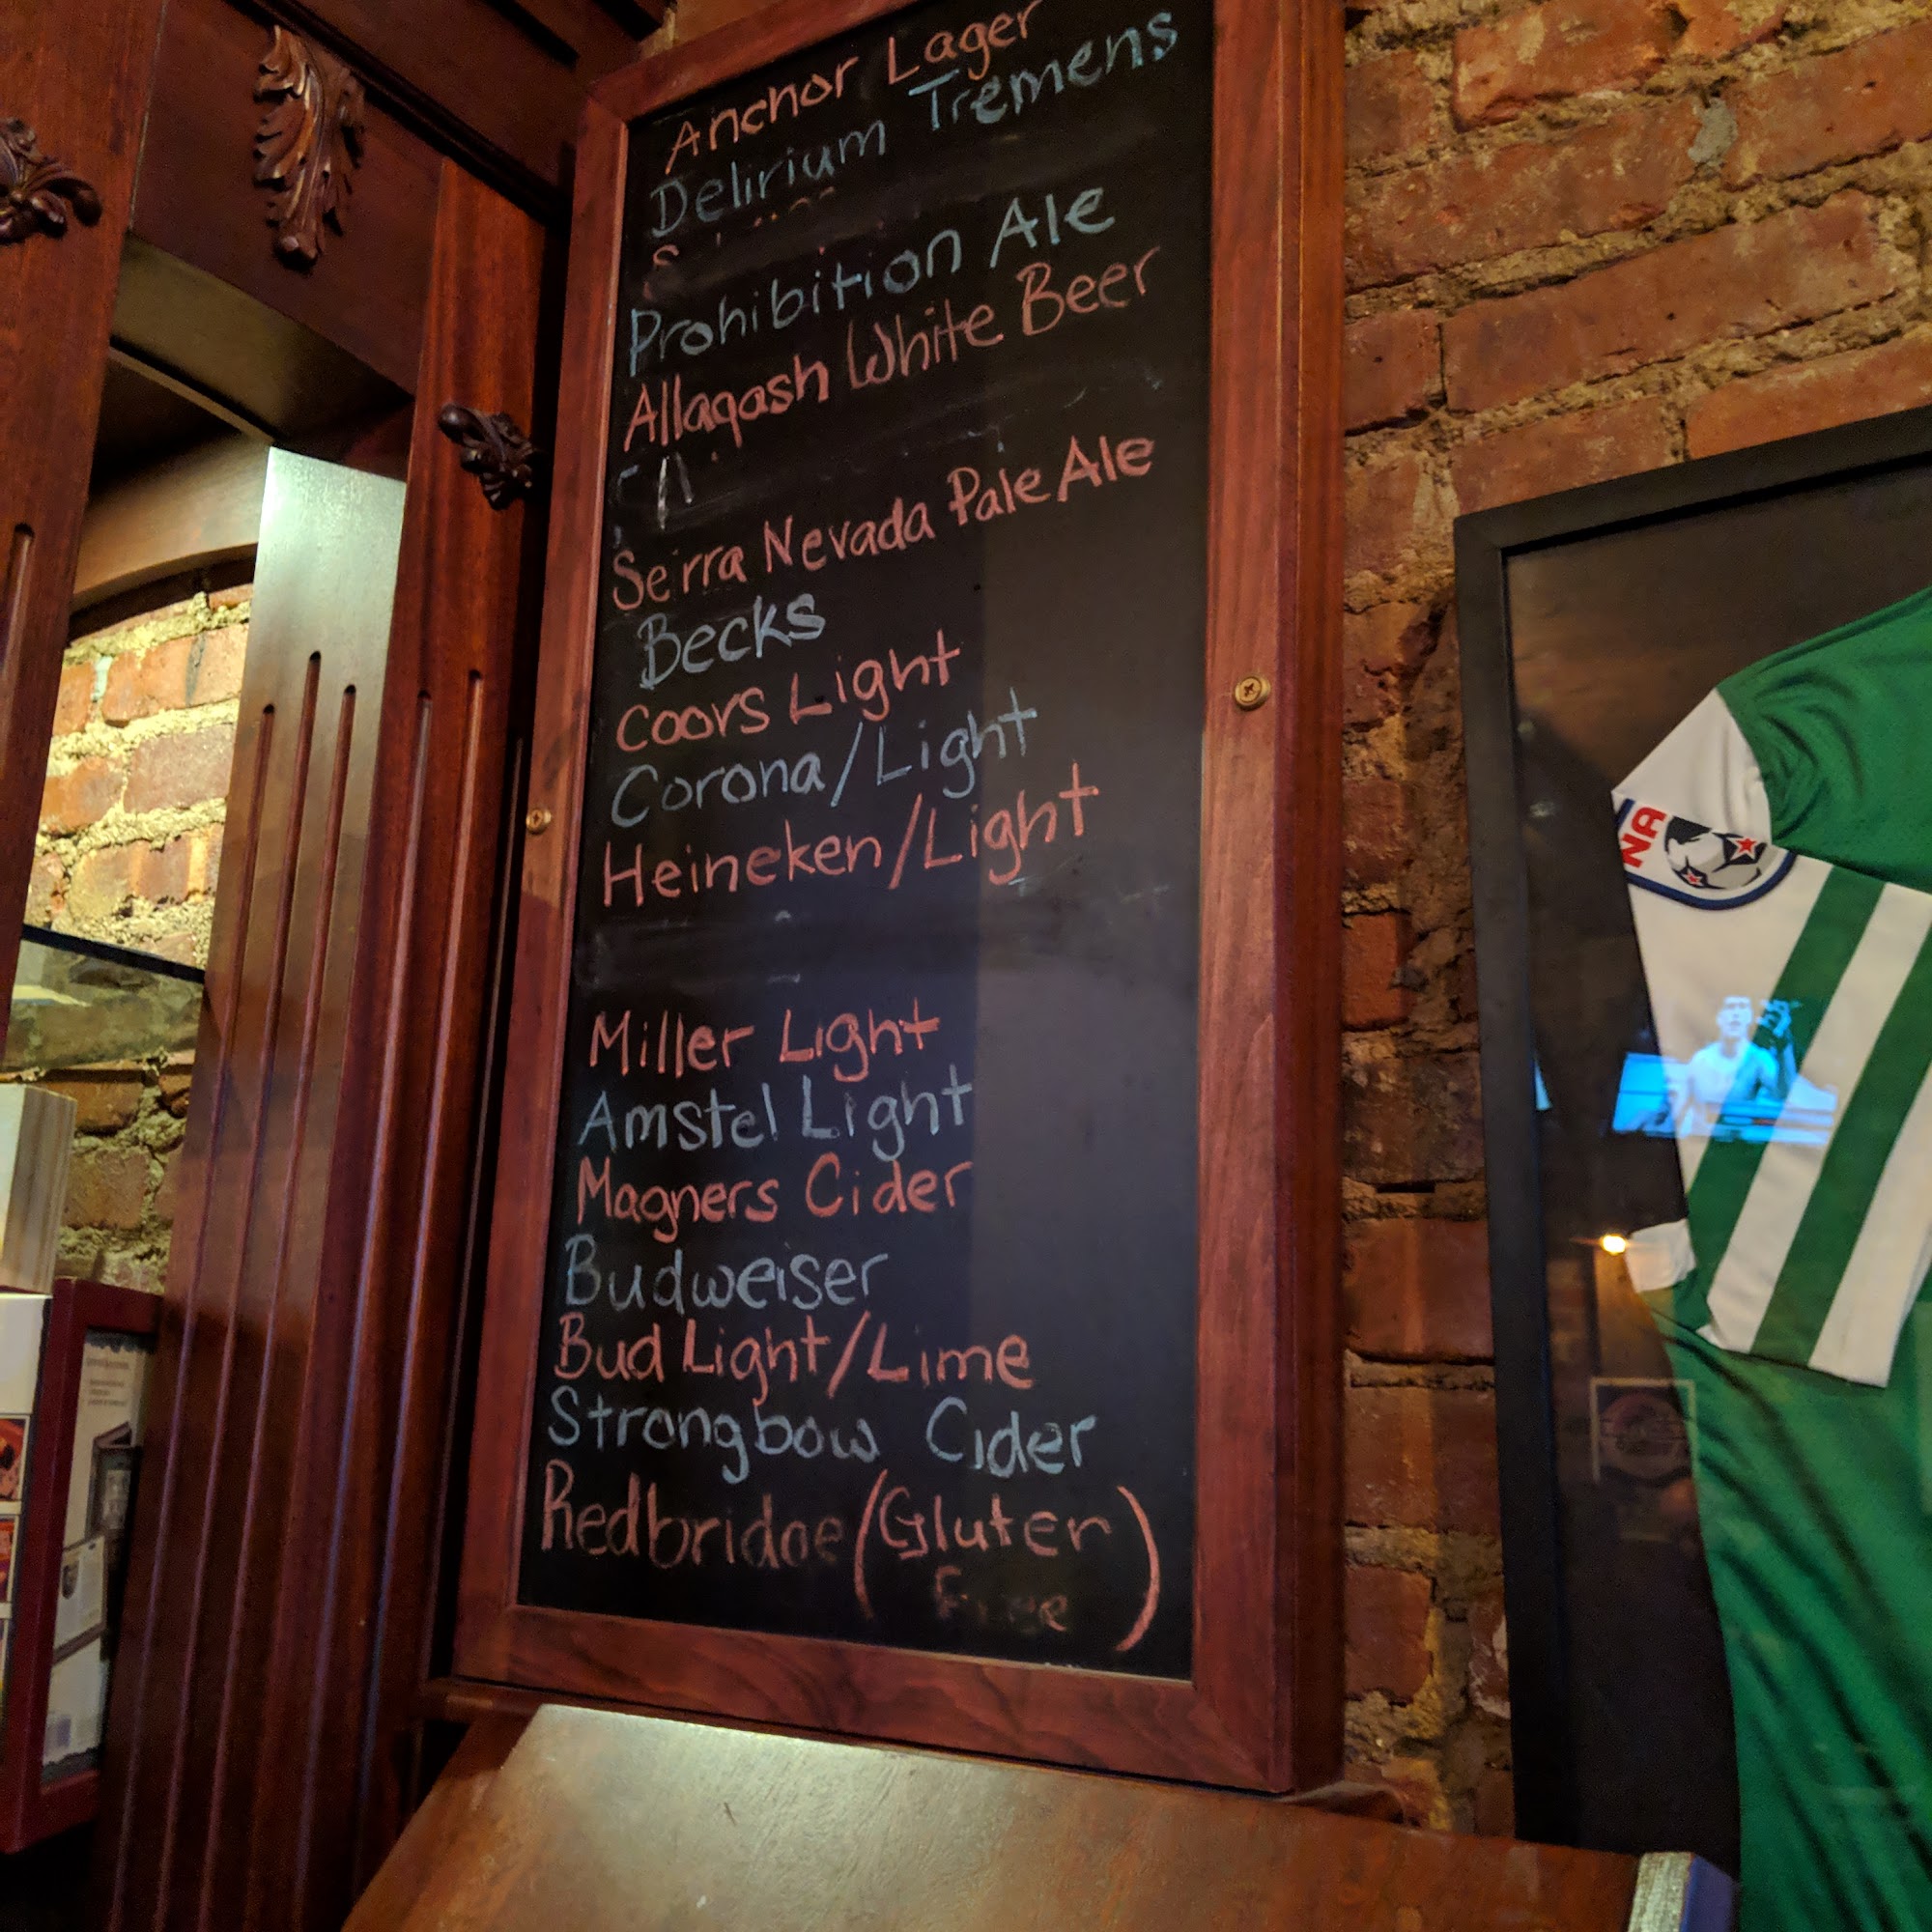 Anchor Lager
Delirium Tremens
Prohibition Ale
Allagash White Beer
Seirra Nevada Pale Ale
Becks
Coors Light
Corona/Light
Heineken/Light
Miller Light
Amstel Light
Magners Cider
Budweiser
Bud Light/Lime
Strongbow Cider
Redbridge (Gluten
Free)
NA